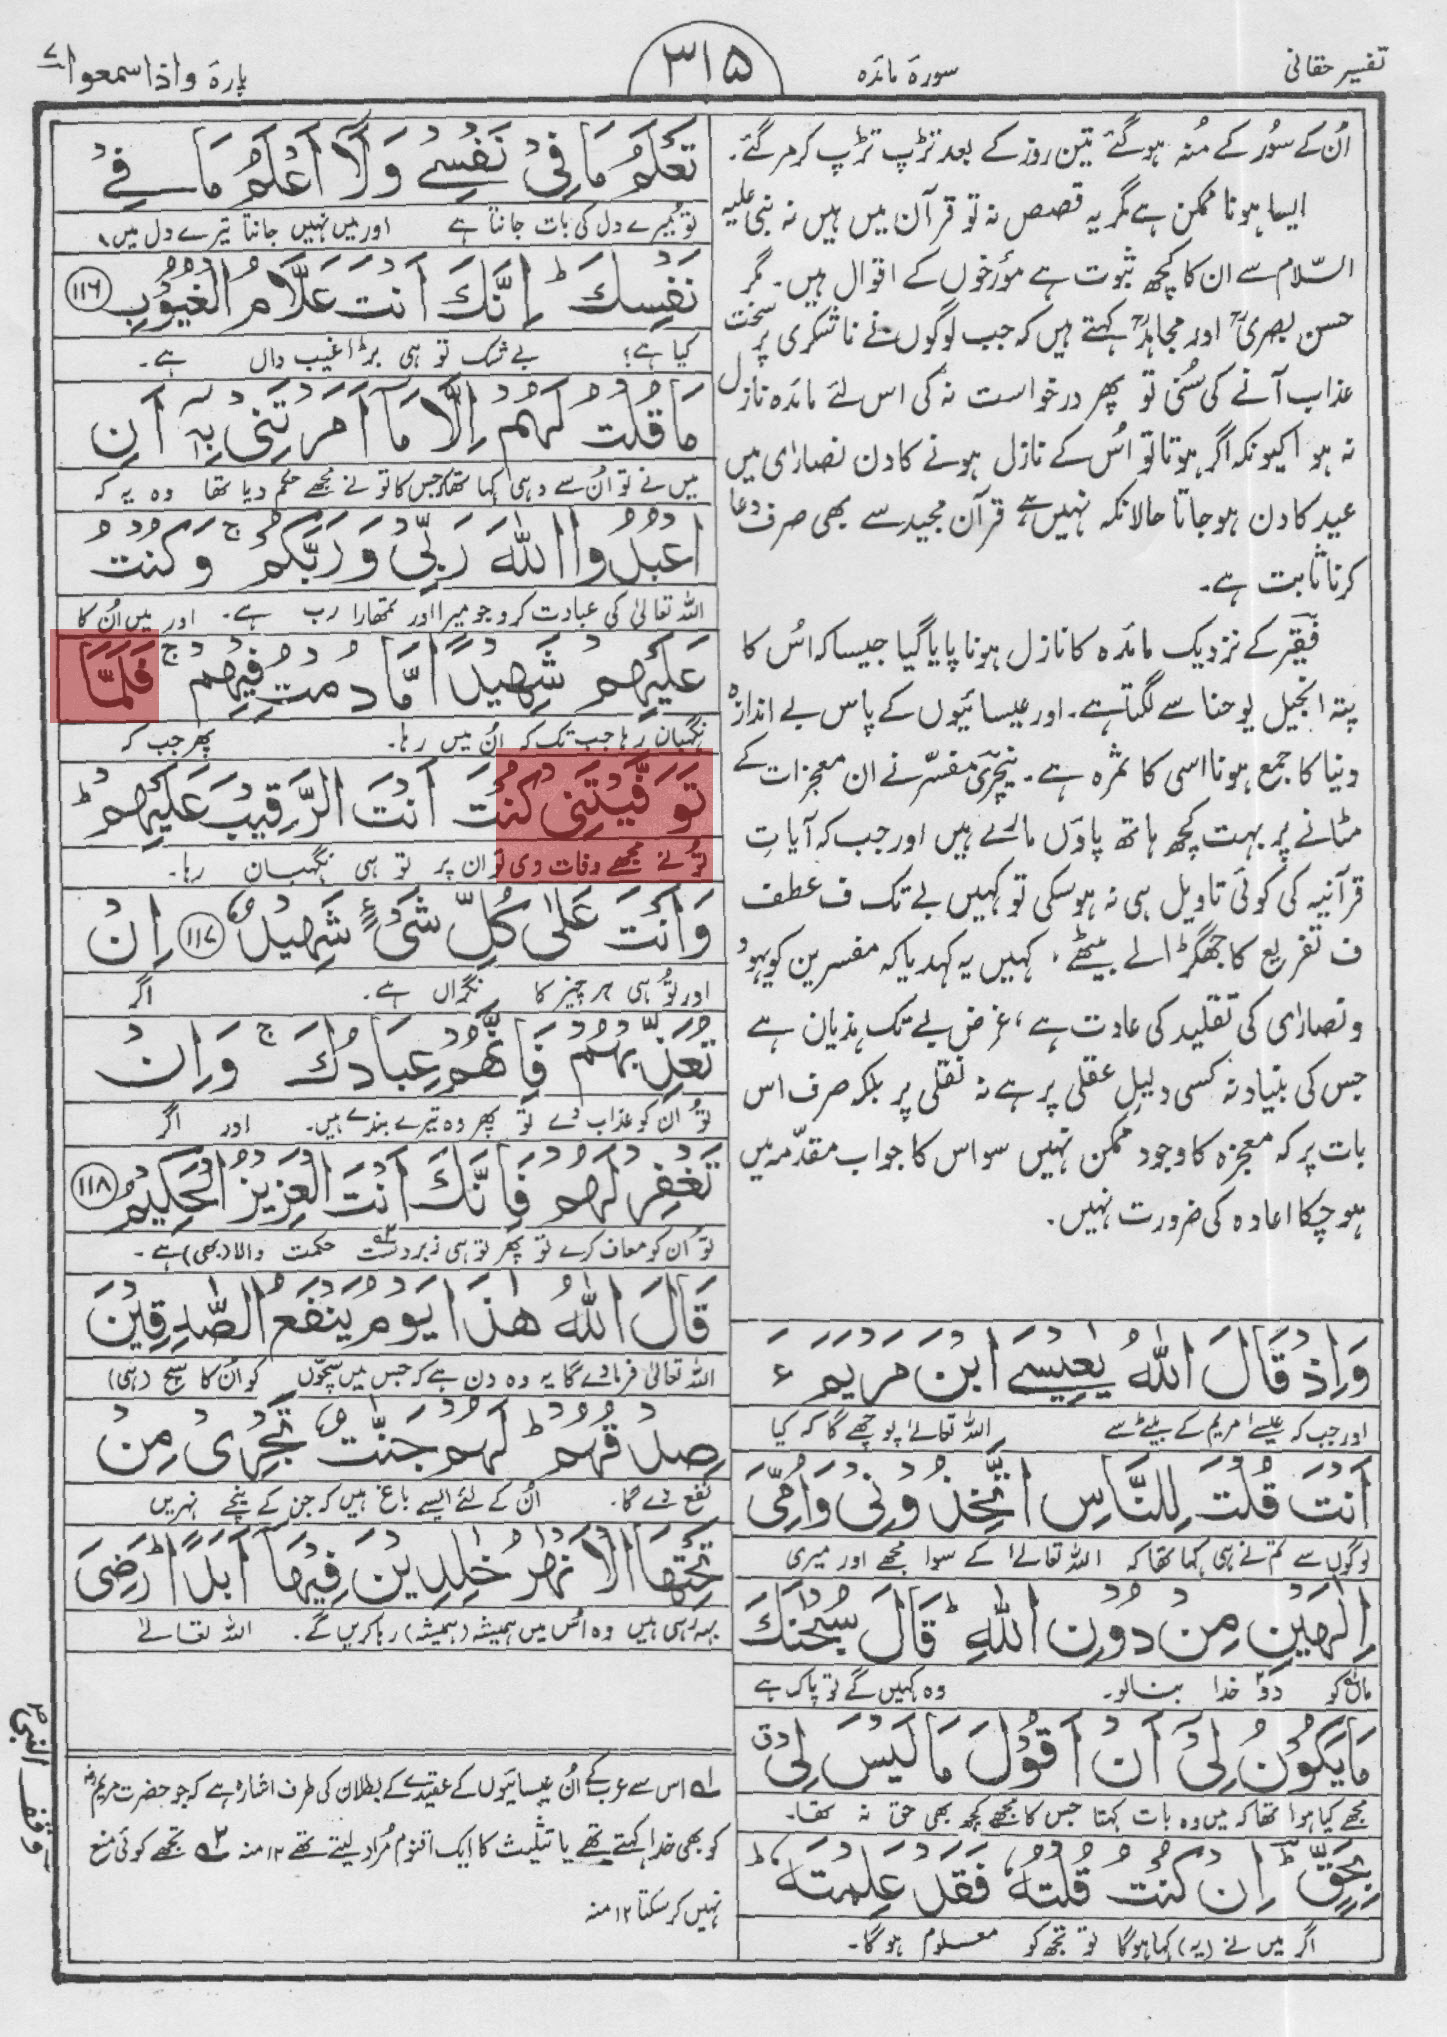 تفسیر حقانی
سورۃ مائدہ
۳۱۵
پارہ واذا سمعوا ۷
اُن کے سُور کے مُنہ ہو گئے تین روز کے بعد تڑپ تڑپ کر مر گئے۔
ایسا ہونا ممکن ہے مگر یہ قصص نہ تو قرآن میں ہیں نہ نبی علیہ
السّلام سے ان کا کچھ ثبوت ہے مورٔخوں کے اقوال ہیں۔ مگر
حسن بصریؒ اور مجاہدؒ کہتے ہیں کہ جب لوگوں نے ناشکری پر سخت
عذاب آنے کی سُنی تو پھر درخواست نہ کی اس لئے مائدہ نازل
نہ ہوا کیونکہ اگر ہوتا تو اُس کے نازل ہونے کا دن نصارٰی میں
عید کا دن ہو جاتا حالانکہ نہیں ہے قرآن مجید سے بھی صرف دعا
کرنا ثابت ہے۔
فقیر کے نزدیک مائدہ کا نازل ہونا پایا گیا جیسا کہ اُس کا
پتہ انجیل یوحنا سے لگتا ہے۔ اور عیسائیوں کے پاس بے اندازہ
دنیا کا جمع ہونا اسی کا ثمرہ ہے۔ نیچری مفسّر نے ان معجزات کے
مٹانے پر بہت کچھ ہاتھ پاؤں مارے ہیں اور جب کہ آیاتِ
قرآنیہ کی کوئی تاویل ہی نہ ہو سکی تو کہیں بے تک ف عطف
ف تفریع کا جھگڑا لے بیٹھے، کہیں یہ کہدیا کہ مفسرین کو یہود
و نصارٰی کی تقلید کی عادت ہے، غرض بے تک ہذیان ہے
جس کی بنیاد نہ کسی دلیلِ عقلی پر ہے نہ نقلی پر بلکہ صرف اس
بات پر کہ معجزہ کا وجود ممکن نہیں سو اس کا جواب مقدّمہ میں
ہو چکا اعادہ کی ضرورت نہیں۔
وَاِذْ قَالَ اللّٰهُ يٰعِيْسَى ابْنَ مَرْيَمَ ءَ
اور جب کہ عیسٰے مریم کے بیٹے سے اللہ تعالےٰ پوچھے گا کہ کیا
اَنْتَ قُلْتَ لِلنَّاسِ اتَّخِذُوْنِيْ وَاُمِّيَ
لوگوں سے تم نے ہی کہا تھا کہ اللہ تعالےٰ کے سوا مجھے اور میری
اِلٰهَيْنِ مِنْ دُوْنِ اللّٰهِ ؕ قَالَ سُبْحٰنَكَ
ماں کو دو خدا بنا لو۔ وہ کہیں گے تو پاک ہے
مَا يَكُوْنُ لِيْٓ اَنْ اَقُوْلَ مَا لَيْسَ لِيْ ق
مجھے کیا ہوا تھا کہ میں وہ بات کہتا جس کا مجھے کچھ بھی حق نہ تھا۔
بِحَقٍّ ؕ اِنْ كُنْتُ قُلْتُهٗ فَقَدْ عَلِمْتَهٗ ؕ
اگر میں نے (یہ) کہا ہو گا تو تجھ کو معلوم ہو گا۔
تَعْلَمُ مَا فِيْ نَفْسِيْ وَلَآ اَعْلَمُ مَا فِيْ
تو میرے دل کی بات جانتا ہے اور میں نہیں جانتا تیرے دل میں
نَفْسِكَ ؕ اِنَّكَ اَنْتَ عَلَّامُ الْغُيُوْبِ ۱۱۶
کیا ہے؛ بے شک تو ہی بڑا غیب داں ہے۔
مَا قُلْتُ لَهُمْ اِلَّا مَآ اَمَرْتَنِيْ بِهٖٓ اَنِ
میں نے تو اُن سے وہی کہا تھا کہ جس کا تو نے مجھے حکم دیا تھا وہ یہ کہ
اعْبُدُوا اللّٰهَ رَبِّيْ وَرَبَّكُمْ ج وَكُنْتُ
اللہ تعالیٰ کی عبادت کرو جو میرا اور تمھارا رب ہے۔ اور میں اُن کا
عَلَيْهِمْ شَهِيْدًا مَّا دُمْتُ فِيْهِمْ ج فَلَمَّا
نگہبان رہا جب تک کہ اُن میں رہا۔ پھر جب کہ
تَوَفَّيْتَنِيْ كُنْتَ اَنْتَ الرَّقِيْبَ عَلَيْهِمْ ؕ
تُو نے مجھے وفات دی تو ان پر تو ہی نگہبان رہا۔
وَاَنْتَ عَلٰى كُلِّ شَيْءٍ شَهِيْدٌ ۱۱۷ اِنْ
اور تُو ہی ہر چیز کا نگراں ہے۔ اگر
تُعَذِّبْهُمْ فَاِنَّهُمْ عِبَادُكَ ج وَاِنْ
تُو ان کو عذاب دے تو پھر وہ تیرے بندے ہیں۔ اور اگر
تَغْفِرْ لَهُمْ فَاِنَّكَ اَنْتَ الْعَزِيْزُ الْحَكِيْمُ ۱۱۸
تو ان کو معاف کرے تو پھر تو ہی زبردست حکمت والا (بھی) ہے۔
قَالَ اللّٰهُ هٰذَا يَوْمُ يَنْفَعُ الصّٰدِقِيْنَ
اللہ تعالیٰ فرما دے گا یہ وہ دن ہے کہ جس میں سچّوں کو اُن کا سچ (ہی)
صِدْقُهُمْ ؕ لَهُمْ جَنّٰتٌ تَجْرِيْ مِنْ
نفع دے گا۔ اُن کے لئے ایسے باغ ہیں کہ جن کے نیچے نہریں
تَحْتِهَا الْاَنْهٰرُ خٰلِدِيْنَ فِيْهَآ اَبَدًا ؕ رَضِيَ
بہہ رہی ہیں وہ اُس میں ہمیشہ (ہمیشہ) رہا کریں گے۔ اللہ تعالےٰ
لہ اس سے عرب کے اُن عیسائیوں کے عقیدے کے بطلان کی طرف اشارہ ہے کہ جو حضرت مریمؓ
کو بھی خدا کہتے تھے یا تثلیث کا ایک اقنوم مُراد لیتے تھے ۱۲ منہ ۲ہ تجھے کوئی منع
نہیں کر سکتا ۱۲ منہ
وقف النبیؐ